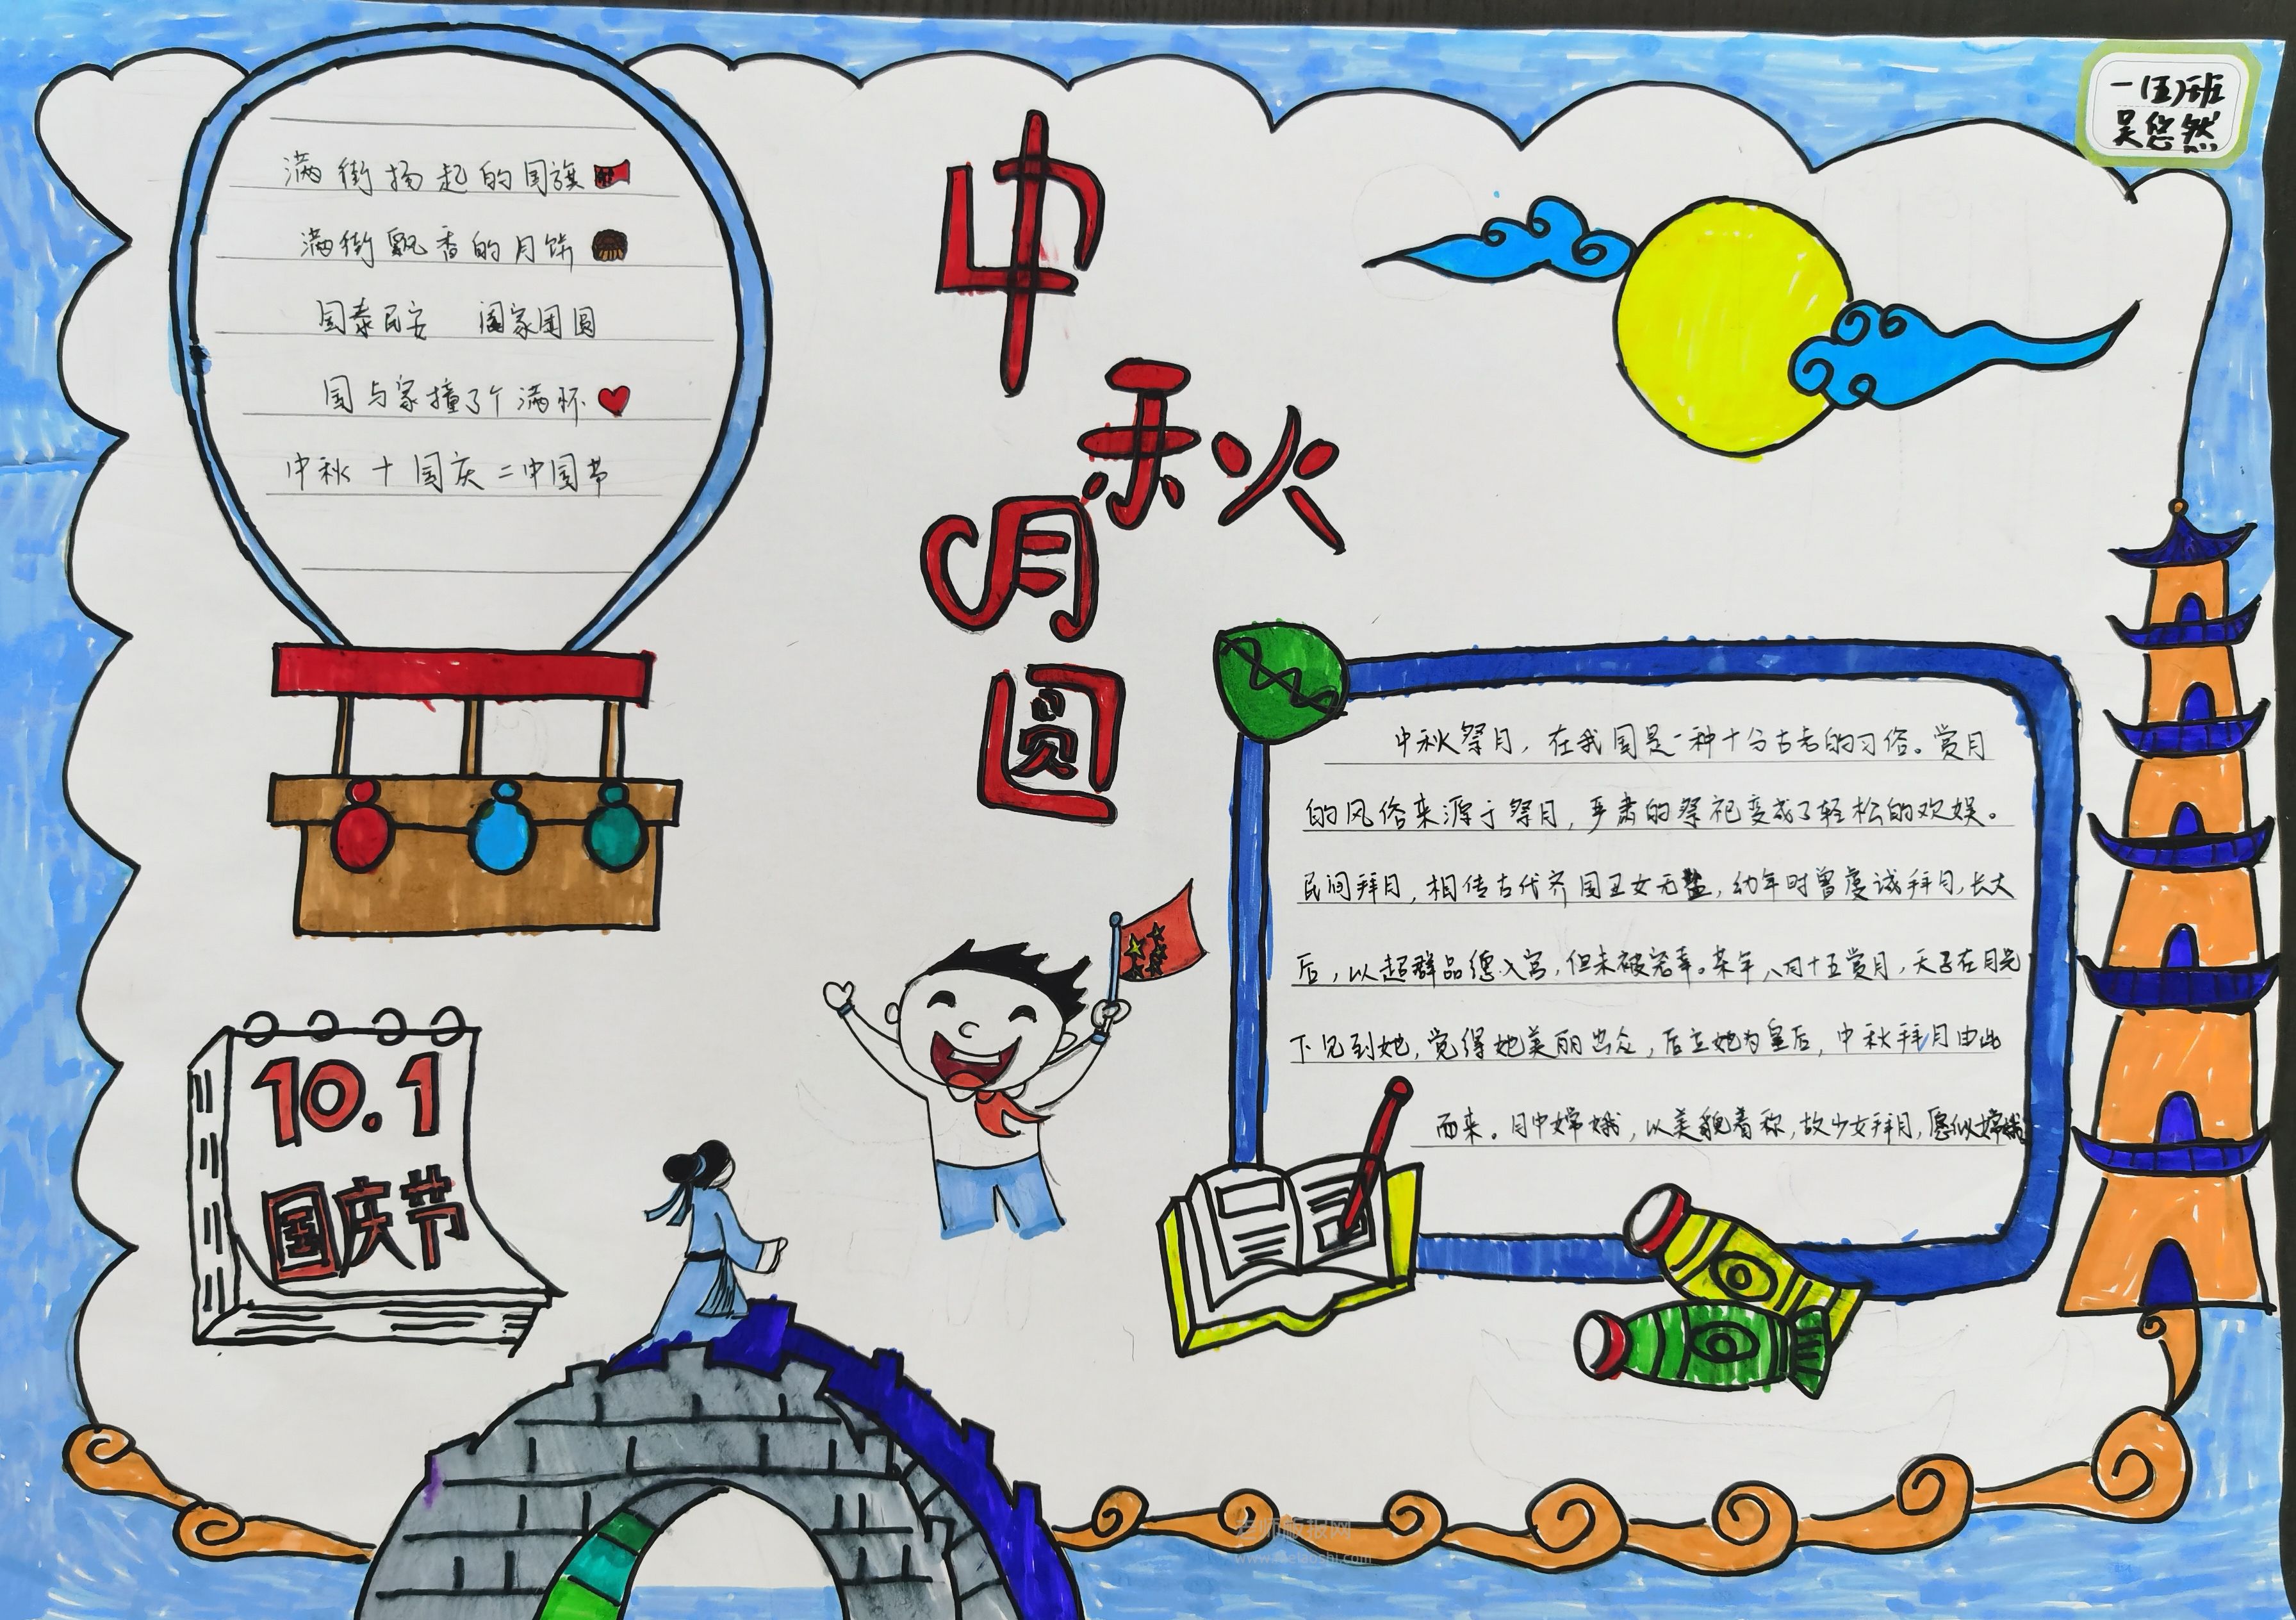 一(五)班
吴悠然
满街扬起的国旗
满街飘香的月饼
国泰民安 阖家团圆
国与家撞了个满怀
中秋十国庆二中国节
中秋
月
圆
中秋祭月，在我国是一种十分古老的习俗。赏月
的风俗来源于祭月，严肃的祭祀变成了轻松的欢娱。
民间拜月，相传古代齐国丑女无盐，幼年时曾虔诚拜月，长大
后，以超群品德入宫，但未被宠幸。某年八月十五赏月，天子在月光
下见到她，觉得她美丽出众，后立她为皇后，中秋拜月由此
而来。月中嫦娥，以美貌着称，故少女拜月，愿似嫦娥
10.1
国庆节
老师板报网